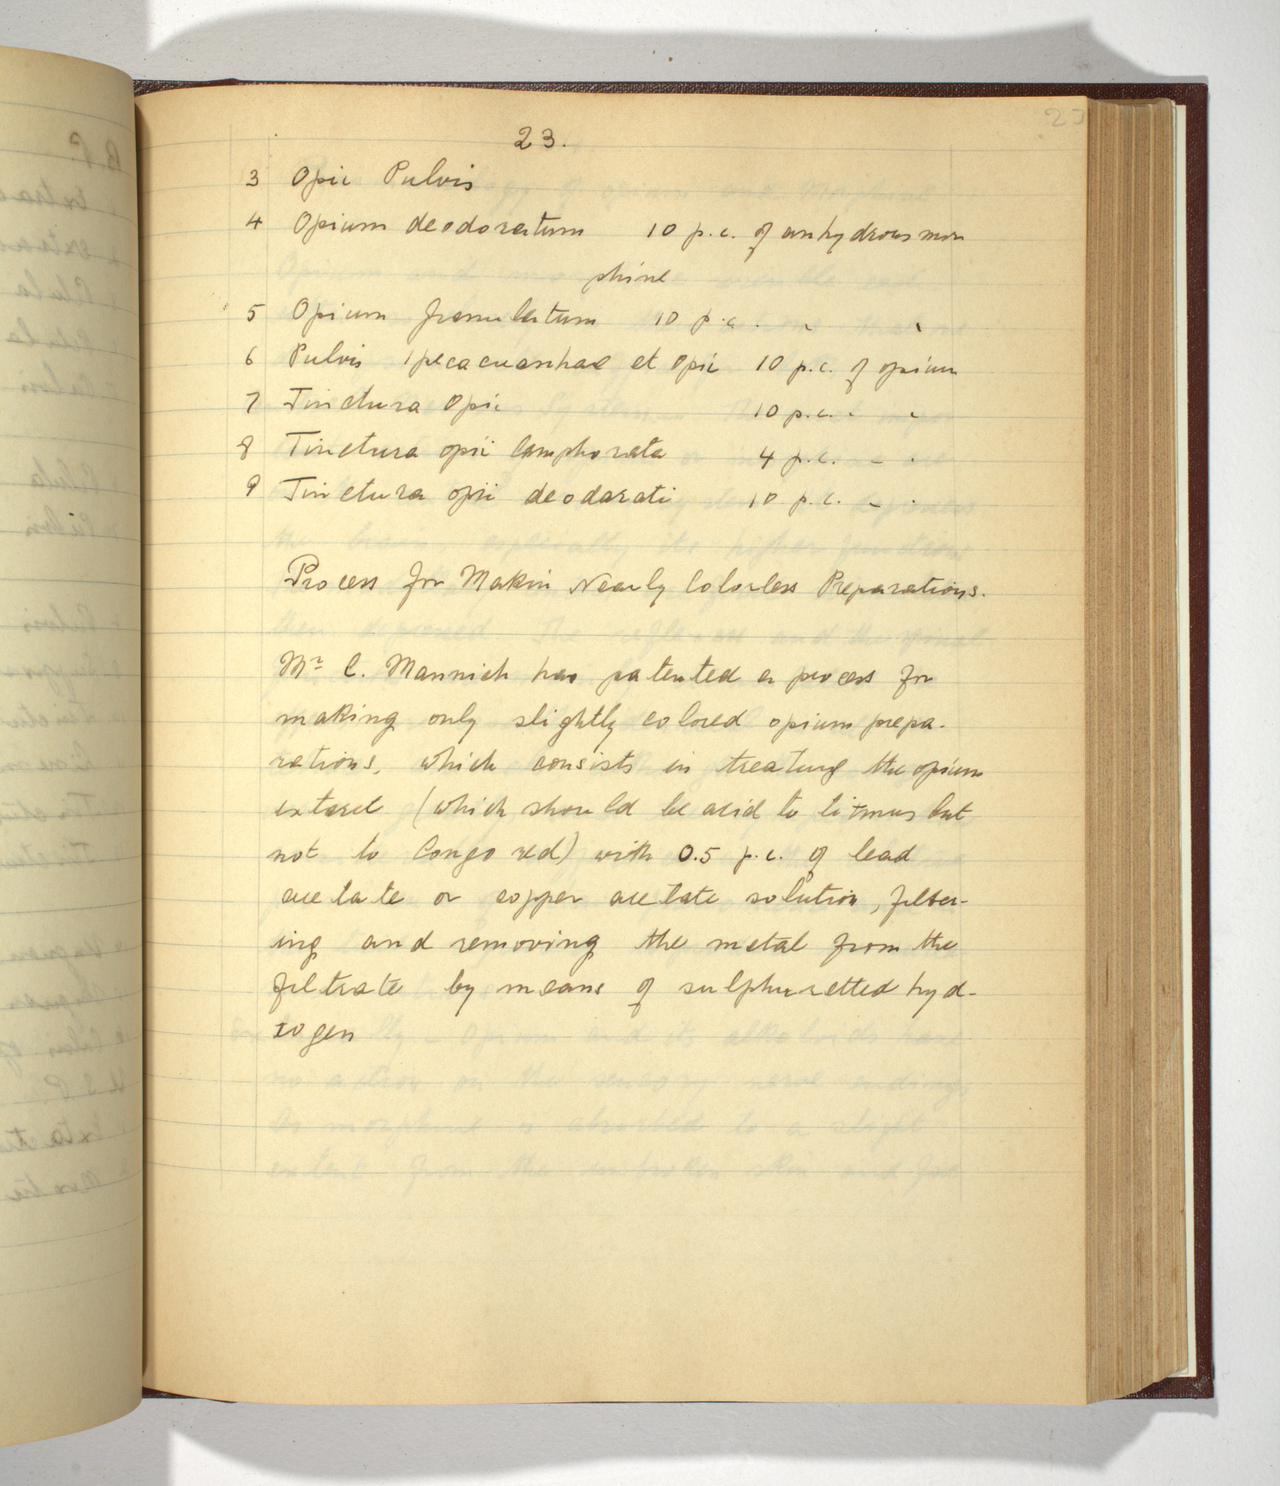 23.
3 Opii Pulvis
4 Opium deodoratum 10 p.c. of anhydrous mor
phine
5 Opium granulatum 10 p.c. " "
6 Pulvis Ipecacuanhae et Opii 10 p.c. of opium
7 Tinctura Opii 10 p.c. " "
8 Tinctura opii Camphorata 4 p.c. " "
9 Tinctura opii deodorati 10 p.c. " "
Process for Makin Nearly Colorless Preparations.
Mr C. Mannich has patented a process for
making only slightly colored opium prepa-
rations, which consists in treating the opium
extract (which should be acid to litmus but
not to Congo red) with 0.5 p.c. of lead
acetate or copper acetate solution, filter-
ing and removing the metal from the
filtrate by means of sulphuretted hyd-
rogen